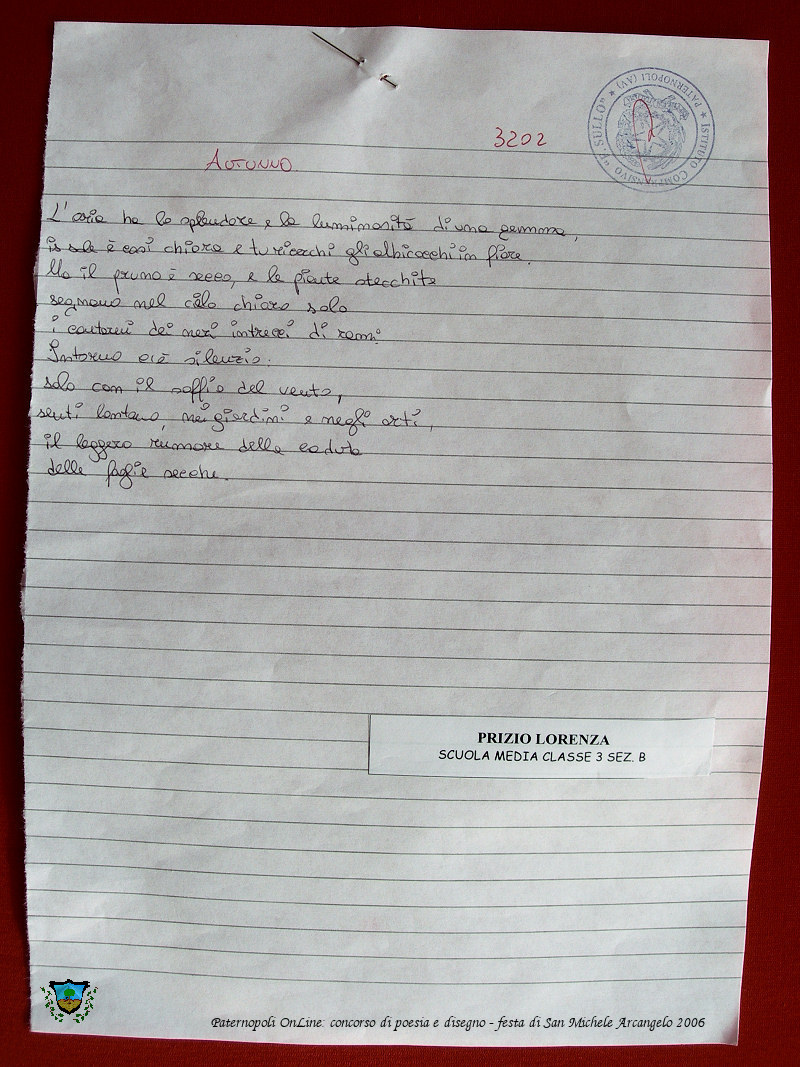 3202
ISTITUTO COMPRENSIVO "F. SULLO" ★ PATERNOPOLI (AV) ★
AUTUNNO
L'aria ha lo splendore e la luminosità di una gemma,
is sole è così chiaro e tu ricerchi gli albicocchi in fiore.
Ma il pruno è secco, e le piante stecchite
segnano nel cielo chiaro solo
i contorni dei neri intrecci di rami.
Intorno c'è silenzio:
solo con il soffio del vento,
senti lontano, nei giardini e negli orti,
il leggero rumore della caduta
delle foglie secche.
PRIZIO LORENZA
SCUOLA MEDIA CLASSE 3 SEZ. B
Paternopoli OnLine: concorso di poesia e disegno - festa di San Michele Arcangelo 2006